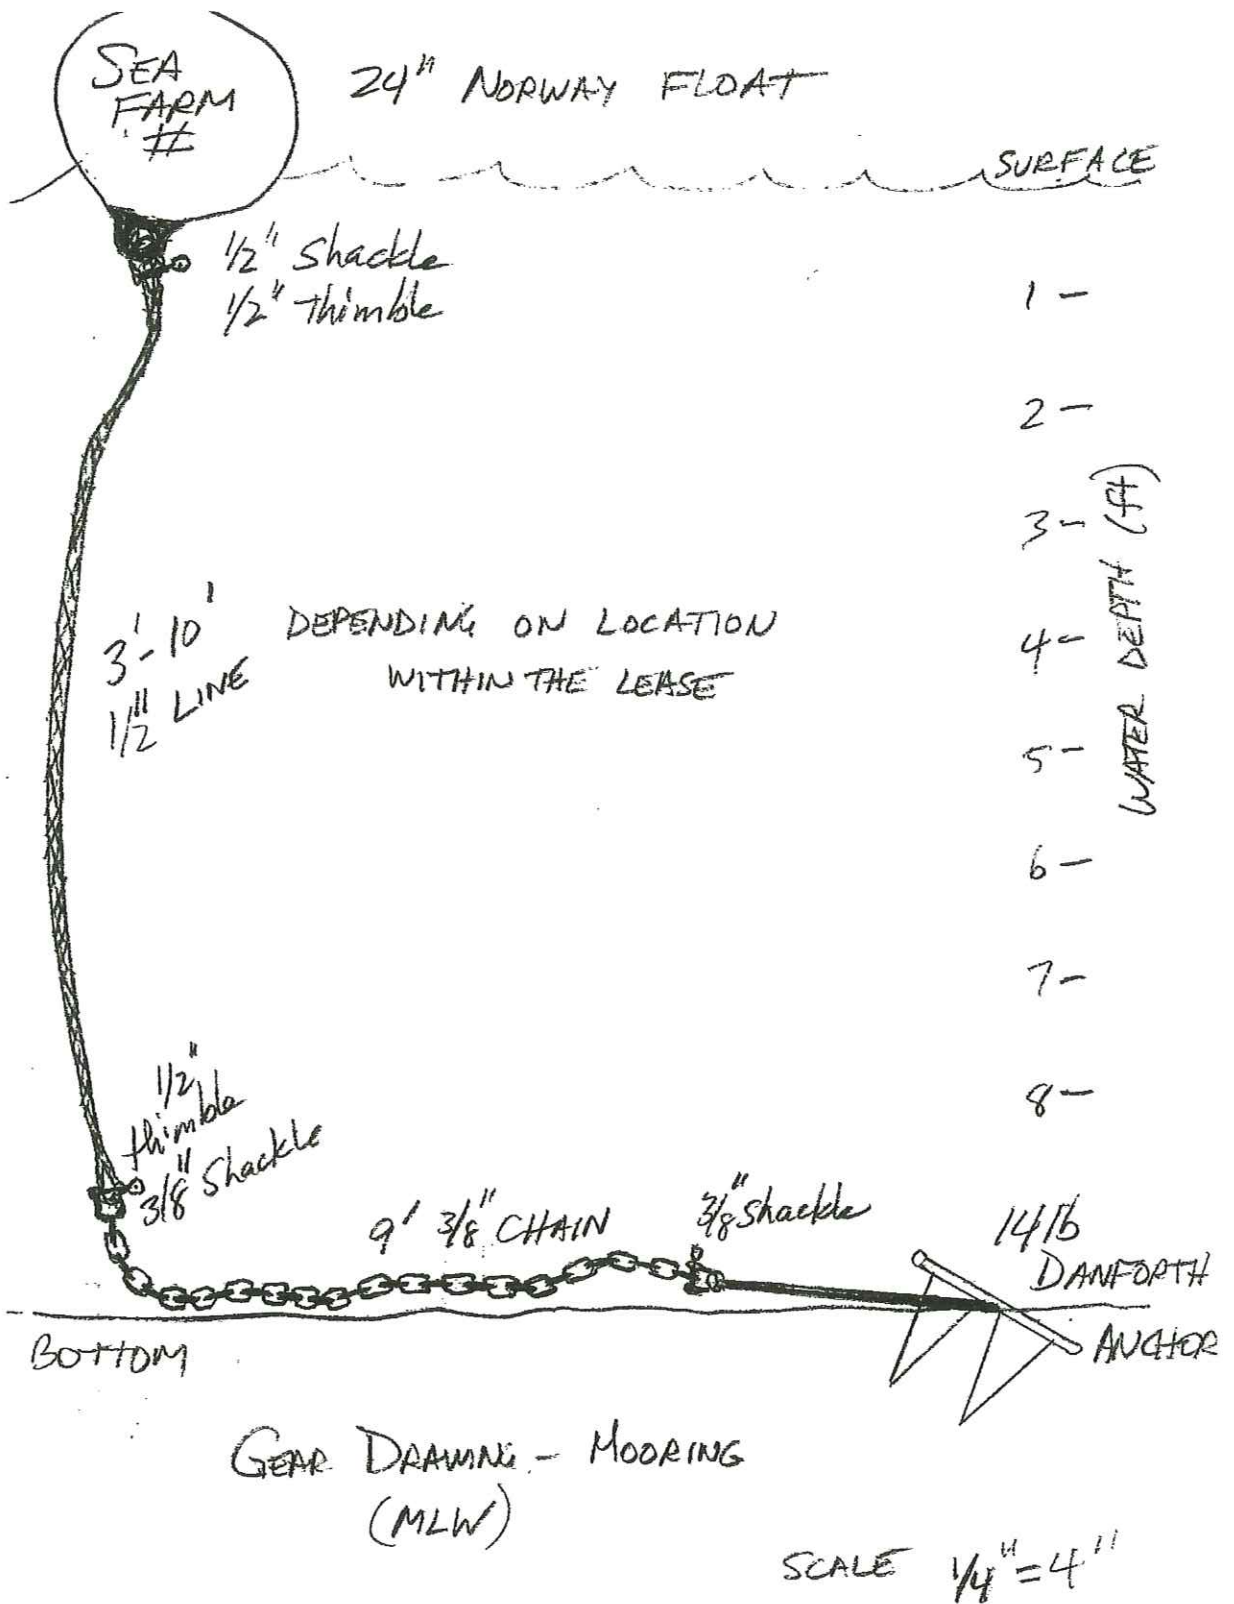 SEA
FARM
#
24" NORWAY FLOAT
SURFACE
1/2" Shackle
1/2" Thimble
1 -
2 -
3 -
4 -
5 -
6 -
7 -
8 -
WATER DEPTH (ft)
3'-10'
1/2" LINE
DEPENDING ON LOCATION
WITHIN THE LEASE
1/2"
thimble
3/8" Shackle
9' 3/8" CHAIN
3/8" Shackle
14 lb
DANFORTH
ANCHOR
BOTTOM
GEAR DRAWING - MOORING
(MLW)
SCALE 1/4" = 4"